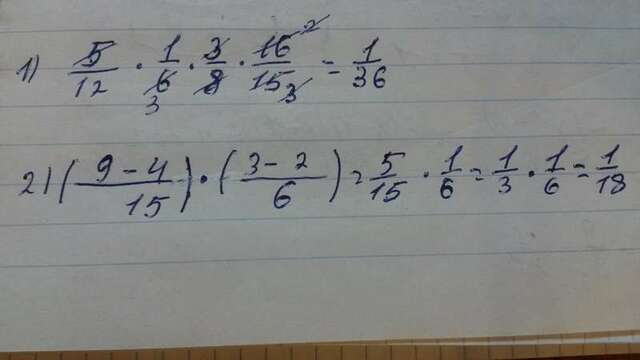 1) 5/12 · 1/6 3 · 3/8 · 16 2/15 3 = 1/36
2) (9-4/15) · (3-2/6) = 5/15 · 1/6 = 1/3 · 1/6 = 1/18